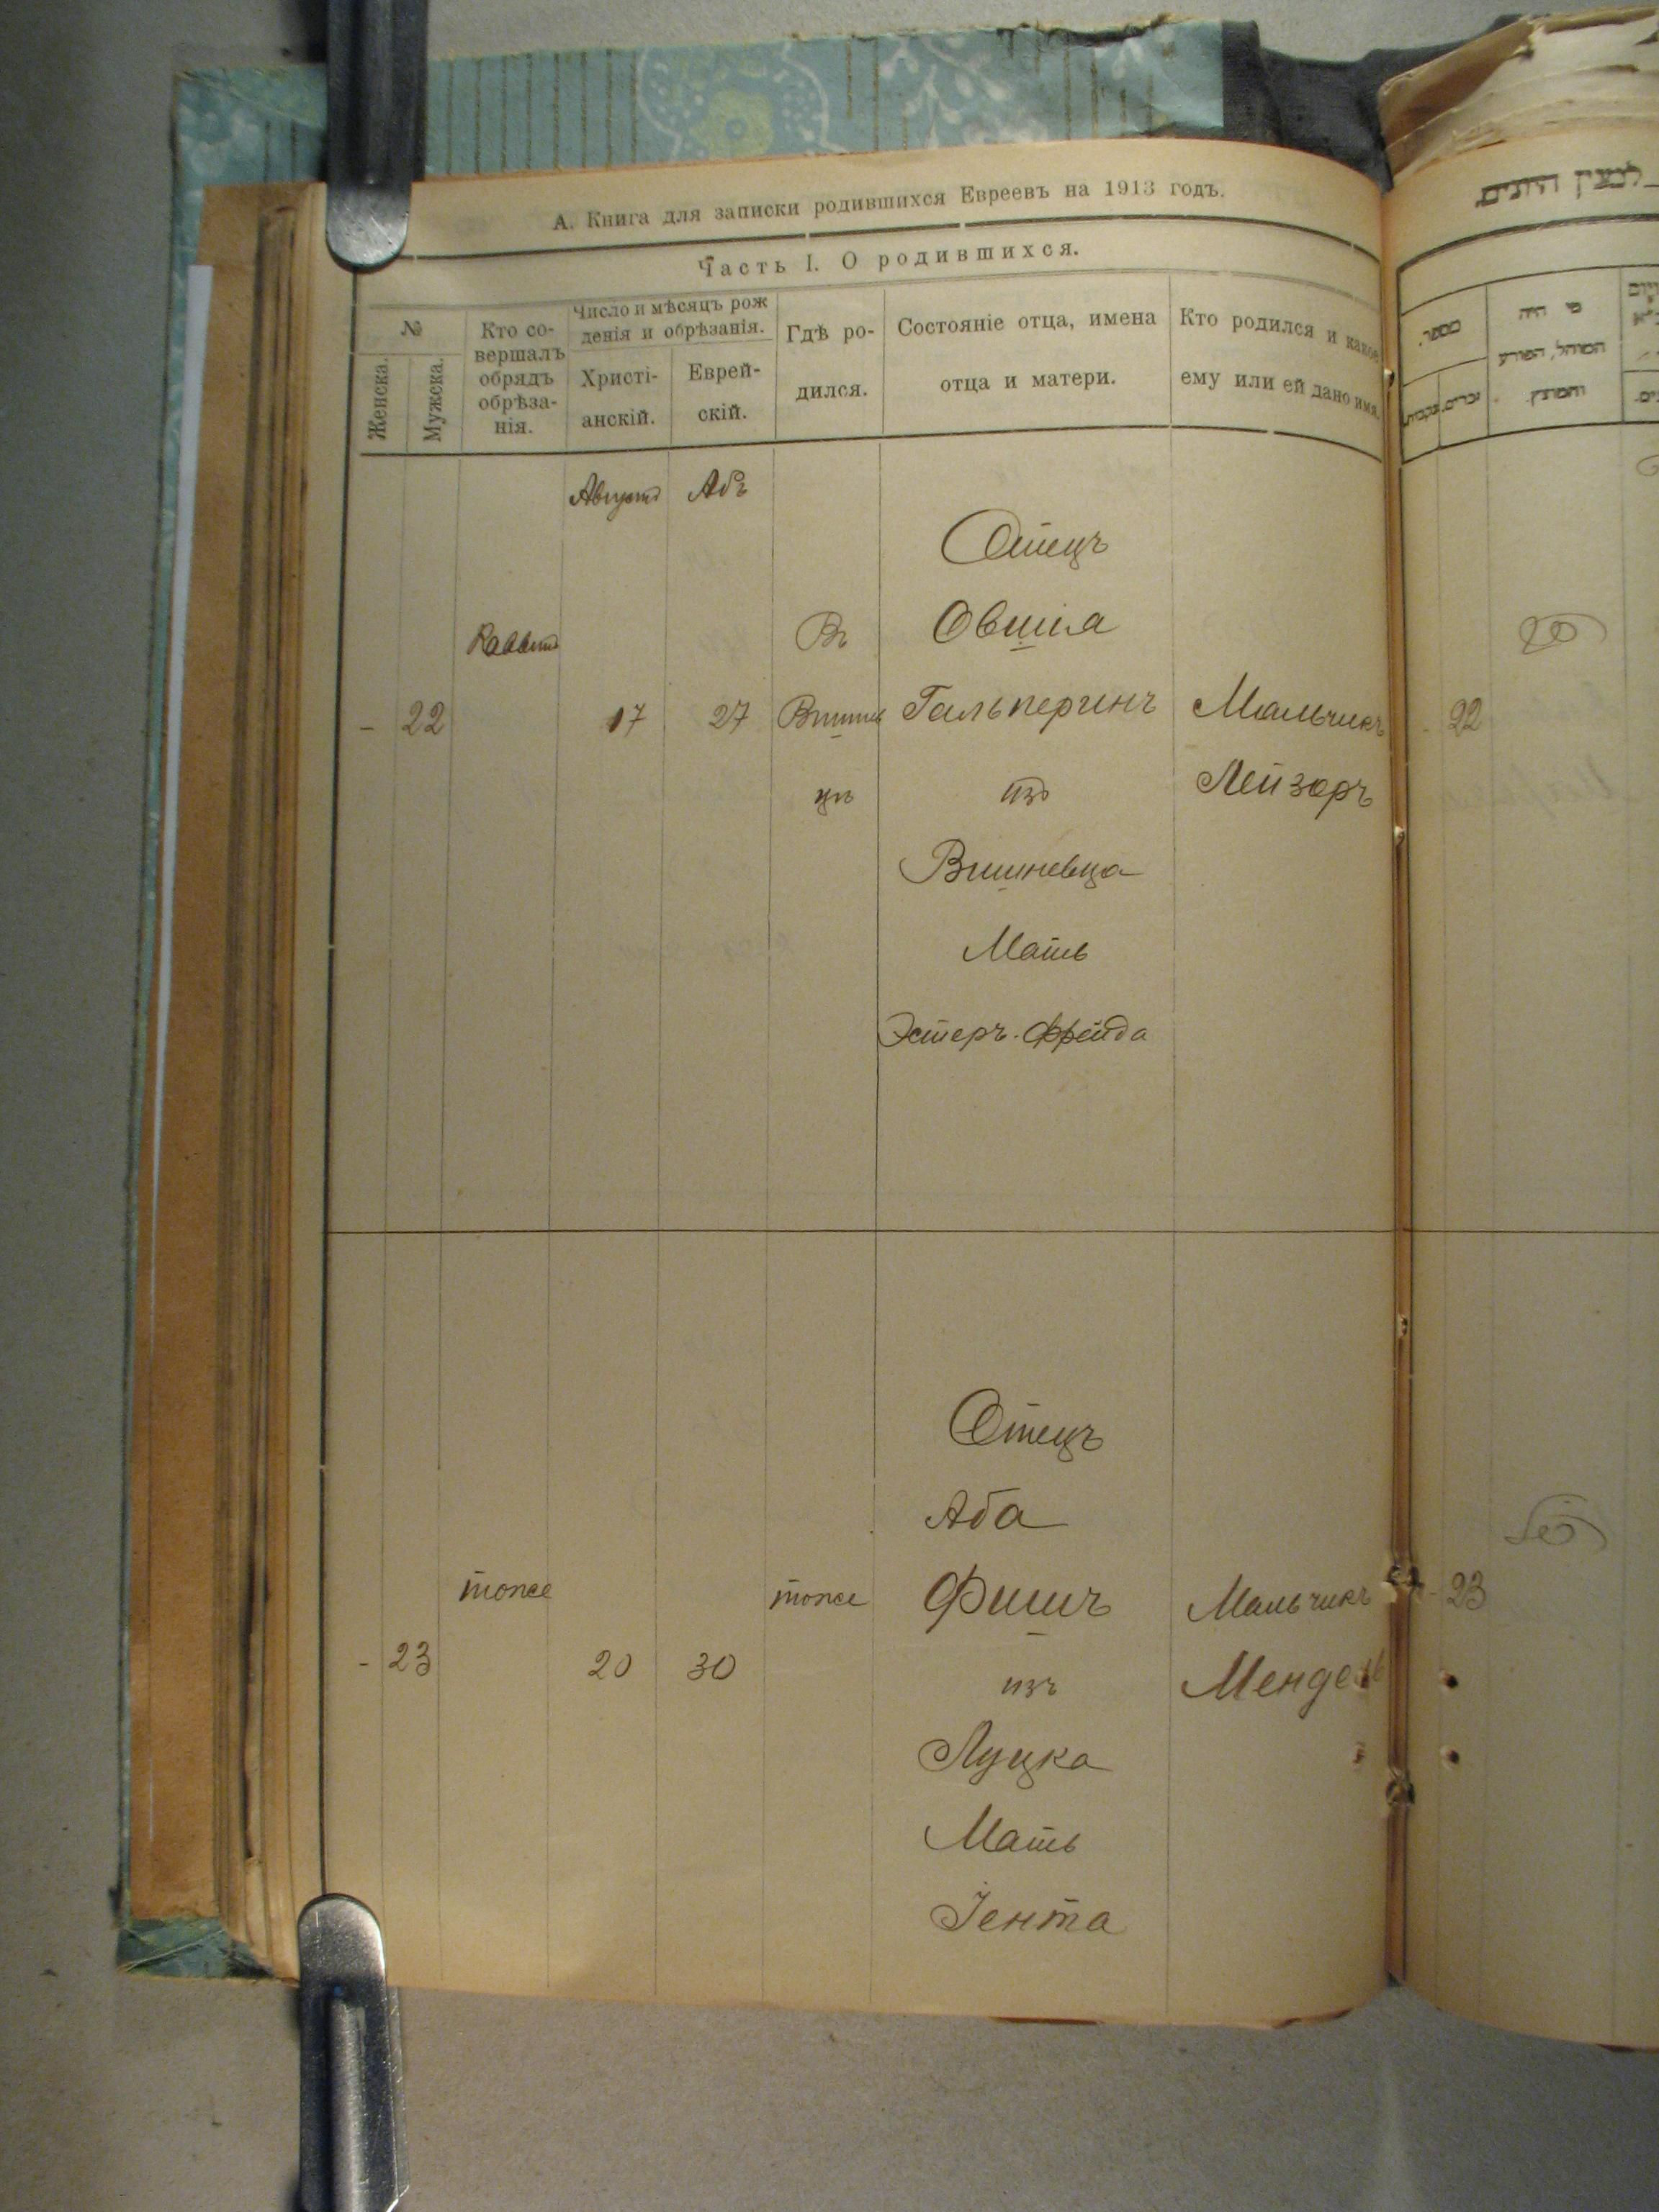 А. Книга для записки родившихся Евреевъ на 1913 годъ.
Часть I. О родившихся.
№
Женска.
Мужска.
Кто со-
вершалъ
обрядъ
обрѣза-
нія.
Число и мѣсяцъ рож
денія и обрѣзанія.
Христі-
анскій.
Еврей-
скій.
Гдѣ ро-
дился.
Состояніе отца, имена
отца и матери.
Кто родился и какое
ему или ей дано имя.
Августъ
Абъ
- 22
Раввинъ
17
27
Въ
Вишнев
цѣ
Отецъ
Овшія
Гальперинъ
изъ
Вишневца
Мать
Эстеръ-Фрейда
Мальчикъ
Лейзоръ
- 23
тоже
20
30
тоже
Отецъ
Аба
Фишъ
изъ
Луцка
Мать
Іента
Мальчикъ
Мендель
מספר.
זכרים.
נקבות.
מי היה
המוהל, הפורע
והמוצץ.
- 22
- 23